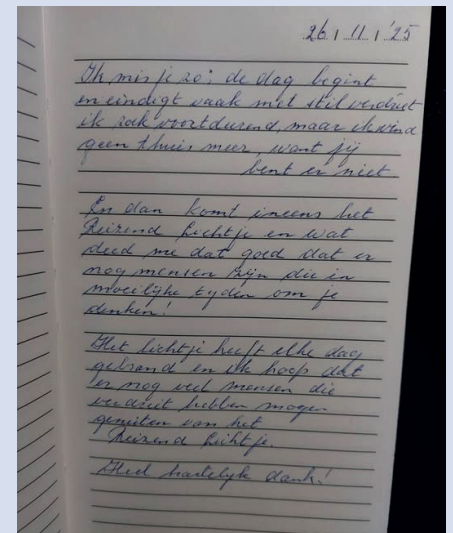 26 / 11 / '25
Ik mis je zo: de dag begint
en eindigt vaak met stil verdriet
ik zoek voortdurend, maar ik vind
geen thuis meer, want jij
bent er niet.
En dan komt ineens het
Reizend Lichtje en wat
deed me dat goed dat er
nog mensen zijn die in
moeilijke tyden om je
denken!
Het lichtje heeft elke dag
gebrand en ik hoop dat
er nog veel mensen die
verdriet hebben mogen
genieten van het
Reizend Lichtje.
Heel hartelyk dank!